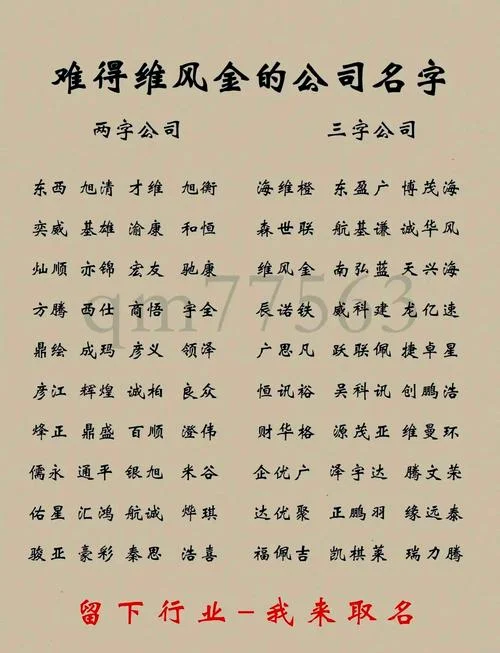 难得维风金的公司名字
两字公司 三字公司
东西 旭清 才维 旭衡 海维橙 东盈广 博茂海
奕威 基雄 渝康 和恒 森世联 航基谦 诚华风
灿顺 亦锦 宏友 驰康 维风金 南弘蓝 天兴海
方腾 西仕 商悟 宇全 辰诺铁 威科建 龙亿速
鼎绘 成玛 彦义 领泽 广思凡 跃联佩 捷卓星
彦江 辉煌 诚柏 良众 恒讯裕 吴科讯 创鹏浩
烽正 鼎盛 百顺 澄伟 财华格 源茂亚 维曼环
儒永 通平 银旭 米谷 企优广 泽宇达 腾文荣
佑星 汇鸿 航诚 烨琪 达优聚 正鹏羽 缘远泰
骏亚 豪彩 秦思 浩喜 福佩吉 凯棋莱 瑞力腾
qm77563
留下行业-我来取名